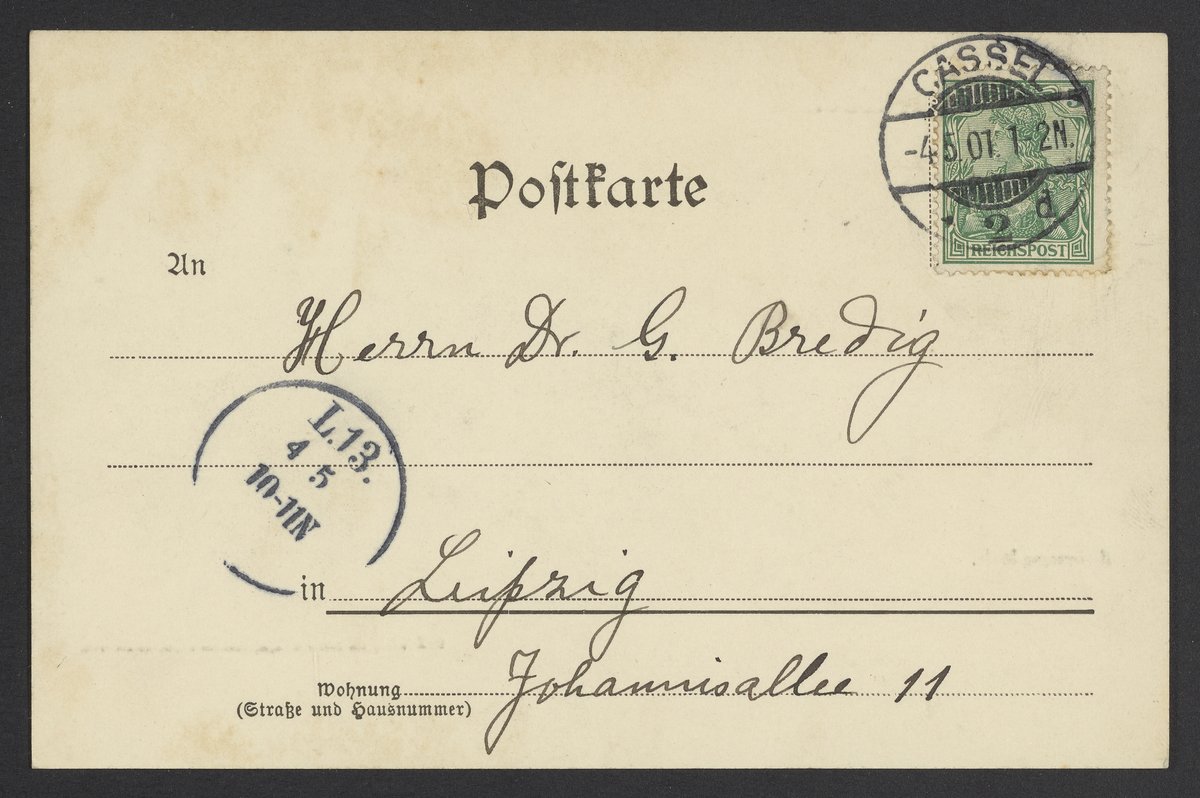 CASSEL
-4.5.01. 1 2N.
* 2 d
5
REICHSPOST
Postkarte
An
Herrn Dr. G. Bredig
L.13.
4 5
10-11N
in Leipzig
Wohnung Johannisallee 11
(Straße und Hausnummer)